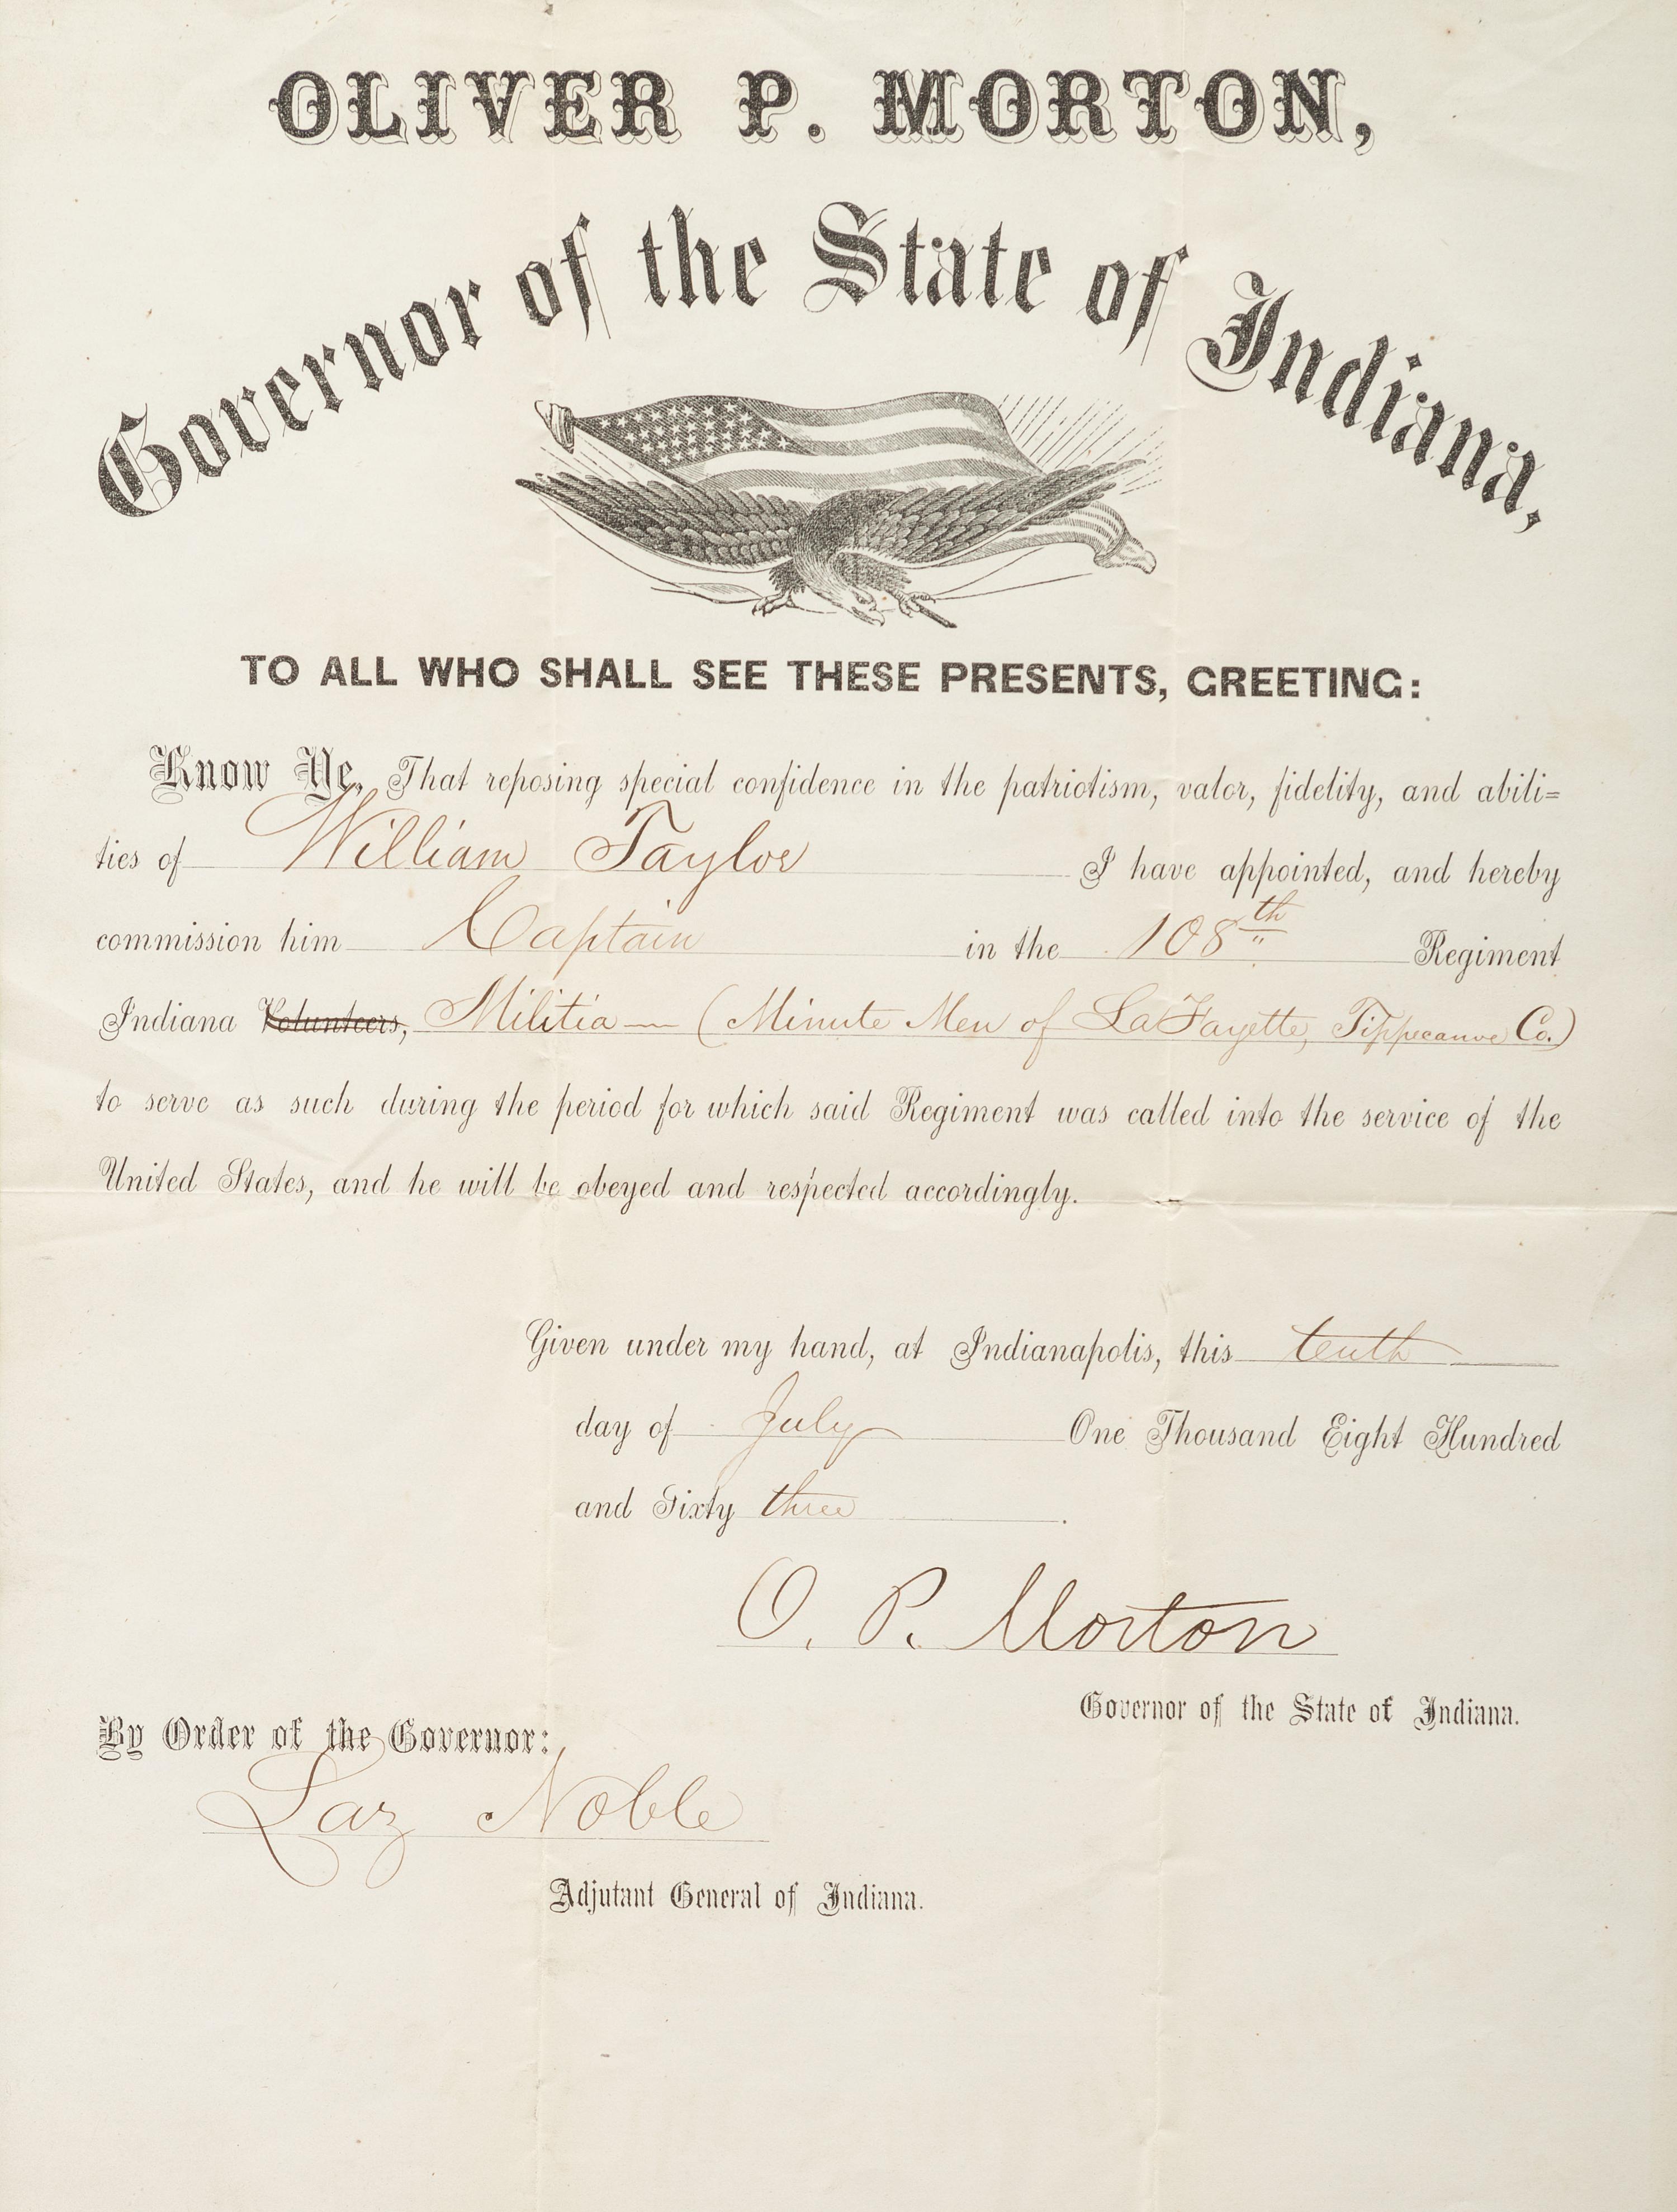 OLIVER P. MORTON,
Governor of the State of Indiana,
TO ALL WHO SHALL SEE THESE PRESENTS, GREETING:
Know Ye, That reposing special confidence in the patriotism, valor, fidelity, and abili=
ties of William Taylor I have appointed, and hereby
commission him Captain in the 108th Regiment
Indiana Volunteers, Militia — (Minute Men of LaFayette, Tippecanoe Co.)
to serve as such during the period for which said Regiment was called into the service of the
United States, and he will be obeyed and respected accordingly.
Given under my hand, at Indianapolis, this tenth
day of July One Thousand Eight Hundred
and Sixty three .
O. P. Morton
Governor of the State of Indiana.
By Order of the Governor:
Laz Noble
Adjutant General of Indiana.